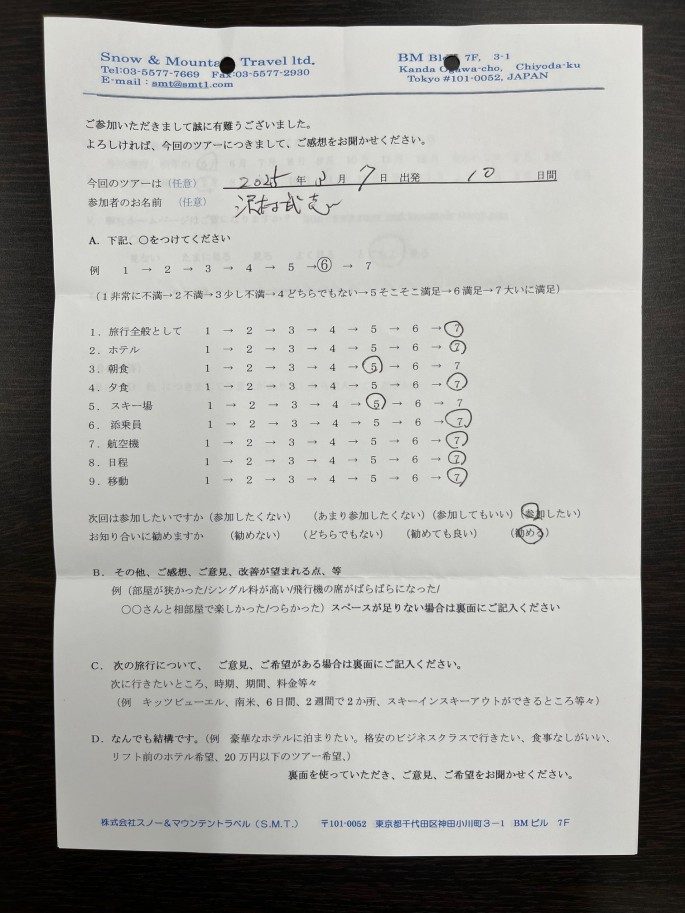 Snow & Mountain Travel ltd.
Tel:03-5577-7669 Fax:03-5577-2930
E-mail : smt@smt1.com
BM Bldg 7F, 3-1
Kanda Ogawa-cho, Chiyoda-ku
Tokyo #101-0052, JAPAN
ご参加いただきまして誠に有難うございました。
よろしければ、今回のツアーにつきまして、ご感想をお聞かせください。
今回のツアーは（任意） 2025 年 月 7 日 出発 10 日間
参加者のお名前 （任意）
A. 下記、○をつけてください
例 1 → 2 → 3 → 4 → 5 → ⑥ → 7
（1 非常に不満→2 不満→3 少し不満→4 どちらでもない→5 そこそこ満足→6 満足→7 大いに満足）
1. 旅行全般として 1 → 2 → 3 → 4 → 5 → 6 → 7
2. ホテル 1 → 2 → 3 → 4 → 5 → 6 → 7
3. 朝食 1 → 2 → 3 → 4 → 5 → 6 → 7
4. 夕食 1 → 2 → 3 → 4 → 5 → 6 → 7
5. スキー場 1 → 2 → 3 → 4 → 5 → 6 → 7
6. 添乗員 1 → 2 → 3 → 4 → 5 → 6 → 7
7. 航空機 1 → 2 → 3 → 4 → 5 → 6 → 7
8. 日程 1 → 2 → 3 → 4 → 5 → 6 → 7
9. 移動 1 → 2 → 3 → 4 → 5 → 6 → 7
次回は参加したいですか（参加したくない） （あまり参加したくない）（参加してもいい）（参加したい）
お知り合いに勧めますか （勧めない） （どちらでもない） （勧めても良い） （勧める）
B. その他、ご感想、ご意見、改善が望まれる点、等
例（部屋が狭かった/シングル料が高い/飛行機の席がばらばらになった/
○○さんと相部屋で楽しかった/つらかった）スペースが足りない場合は裏面にご記入ください
C. 次の旅行について、 ご意見、ご希望がある場合は裏面にご記入ください。
次に行きたいところ、時期、期間、料金等々
（例 キッツビューエル、南米、6日間、2週間で2か所、スキーインスキーアウトができるところ等々）
D. なんでも結構です。（例 豪華なホテルに泊まりたい。格安のビジネスクラスで行きたい、食事なしがいい、
リフト前のホテル希望、20万円以下のツアー希望、）
裏面を使っていただき、ご意見、ご希望をお聞かせください。
株式会社スノー＆マウンテントラベル（S.M.T.） 〒101-0052 東京都千代田区神田小川町3－1 BMビル 7F